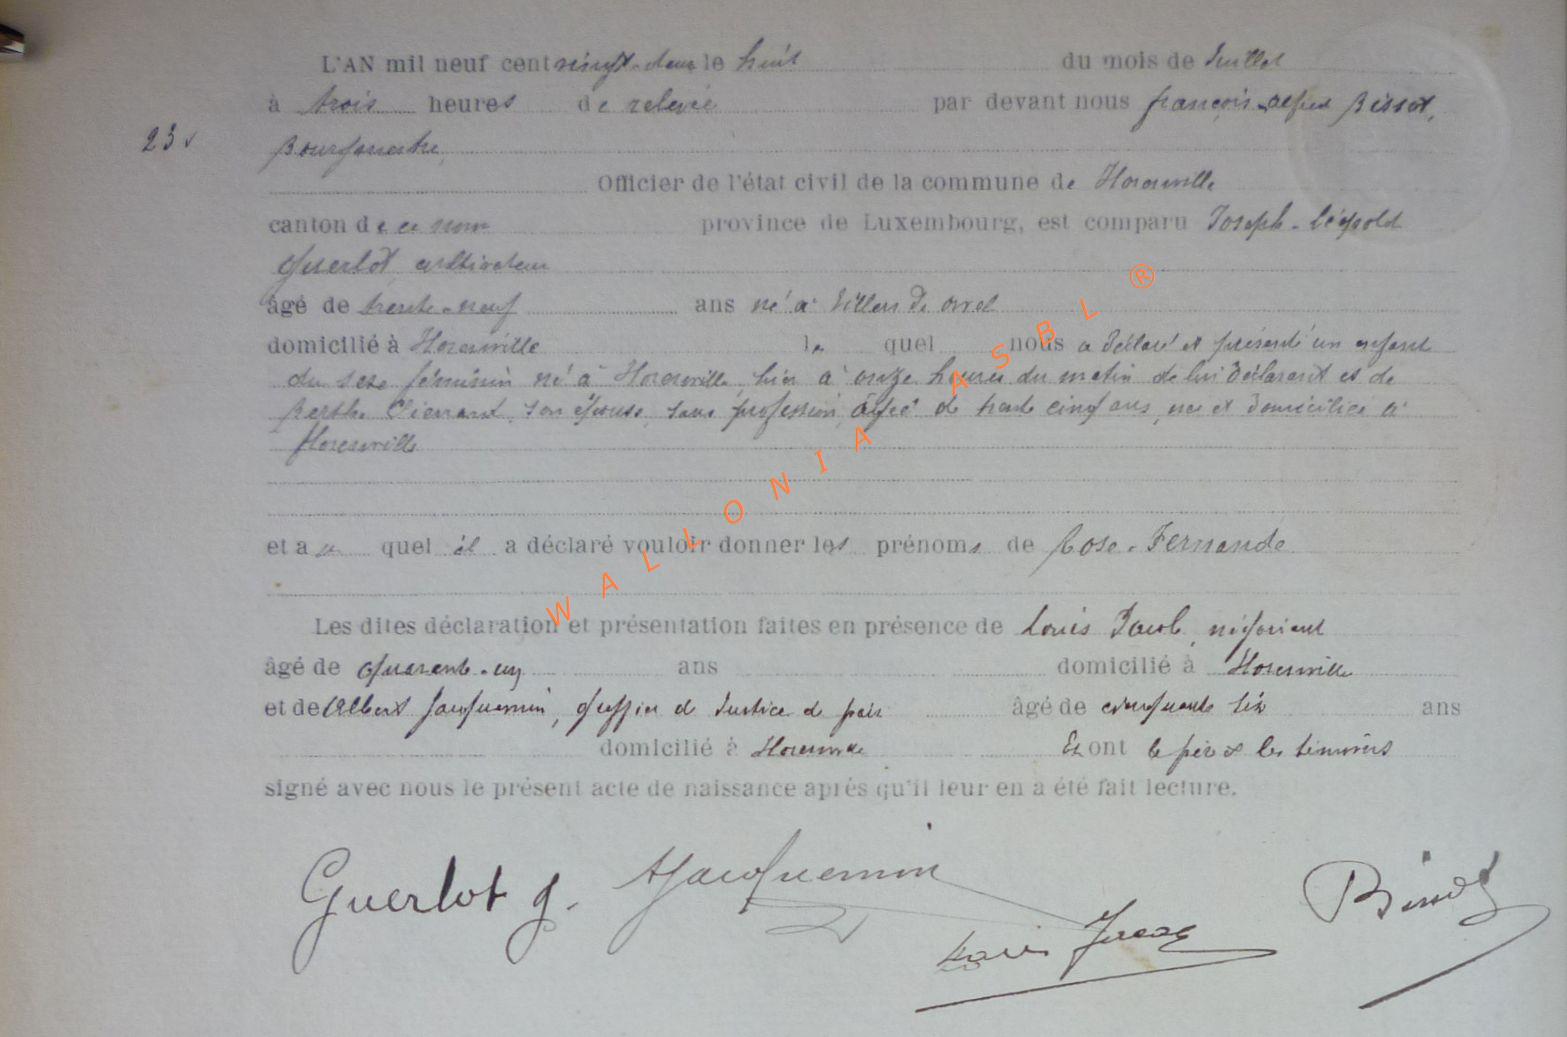 L'AN mil neuf cent vingt-deux le huit du mois de Juillet
à trois heures de relevée par devant nous françois-alfred Bissot,
23
Bourgmestre,
Officier de l'état civil de la commune de Florenville
canton de ce nom province de Luxembourg, est comparu Joseph-Léopold
Guerlot, cultivateur
âgé de trente-neuf ans né à Villers de Orval
domicilié à Florenville le quel nous a déclaré et présenté un enfant
du sexe féminin né à Florenville, hier à onze heures du matin de lui déclarant et de
Berthe son épouse, sans profession, âgée de trente cinq ans, née et domiciliée à
Florenville
et au quel il a déclaré vouloir donner les prénoms de Rose-Fernande
Les dites déclaration et présentation faites en présence de Louis Jacob, négociant
âgé de quarante-un ans domicilié à Florenville
et de Albert Jacquemin, greffier de Justice de paix âgé de cinquante six ans
domicilié à Florenville Et ont le père et les témoins
signé avec nous le présent acte de naissance après qu'il leur en a été fait lecture.
Guerlot J. AJacquemin Bissot
Louis Jacob
WALLONIA ASBL ®